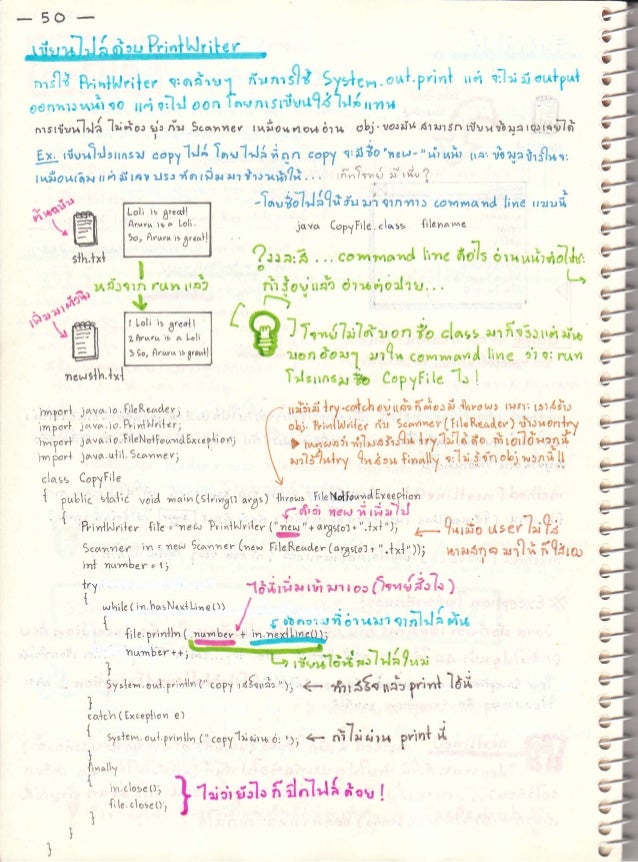 — 50 —
เขียนไฟล์ด้วย PrintWriter
การใช้ PrintWriter จะคล้ายๆ กับการใช้ System.out.print แต่ จะไม่มี output
ออกทางหน้าจอ แต่จะไปออก โดยการเขียนใส่ไฟล์แทน
การเขียนไฟล์ ไม่ต้อง ยุ่ง กับ Scanner เหมือนตอนอ่าน obj. ของมันสามารถ เขียน ข้อมูลเองเลยได้
Ex. เขียนโปรแกรม copy ไฟล์ โดย ไฟล์ที่ถูก copy จะมีชื่อ "new-" นำหน้า และ ข้อมูลข้างในจะ
เหมือนเดิม แต่มีเลขบรรทัดเพิ่มมาข้างหน้าให้... โจทย์ มีเนี่ย?
ต้นฉบับ
Loli is great!
Aruru is a Loli.
So, Aruru is great!
sth.txt
-โดยชื่อไฟล์ให้รับมาจากทาง command line แบบนี้
java CopyFile.class filename
หลังจาก run แล้ว
?งงละสิ... command line คือไร อ่านหน้าต่อไปซะ
ถ้ารู้อยู่แล้ว อ่านต่อปาย...
เพิ่มมาตัวนึง
1 Loli is great!
2 Aruru is a Loli
3 So, Aruru is great!
newsth.txt
โจทย์ไม่ได้บอก ชื่อ class มาก็จริงแต่มัน
บอกอ้อมๆ มาใน command line ว่าจะ run
โปรแกรม ชื่อ CopyFile ไง!
import java.io.FileReader;
import java.io.PrintWriter;
import java.io.FileNotFoundException;
import java.util.Scanner;
แม้ว่ามี try-catch อยู่แล้วก็ต้องมี throws เพราะเราสร้าง
obj. PrintWriter กับ Scanner (FileReader) ข้างนอก try
▶ เหตุผลว่าทำไมสร้างใน try ไม่ได้ คือ ถ้าเอาไอ้พวกนี้
มาไว้ใน try ในส่วน finally จะไม่รู้จัก obj พวกนี้!!
class CopyFile
{ public static void main(String[] args) throws FileNotFoundException
คำว่า new ที่เพิ่มไป
{ PrintWriter file = new PrintWriter("new" + args[0] + ".txt");
Scanner in = new Scanner(new FileReader(args[0] + ".txt"));
ในเมื่อ user ไม่ใส่
นามสกุล มาให้ ก็ใส่เอง
int number = 1;
try
ไอ้นี่เพิ่มเข้ามาเอง (โจทย์สั่งไง)
{
while(in.hasNextLine())
ข้อความที่อ่านมาจากไฟล์ต้น
{
file.println( number + in.nextLine());
number++;
เขียนไอ้นี่ ลงไฟล์ใหม่
}
System.out.println("copy เสร็จแล้ว"); ← ทำเสร็จแล้ว print ไอ้นี่
}
catch(Exception e)
{
System.out.println("copy ไม่ผ่าน อ่ะ"); ← ถ้าไม่ผ่าน print นี่
}
finally
{
in.close();
file.close();
} ไม่ว่ายังไง ก็ ปิดไฟล์ ด้วย!
}
}
}